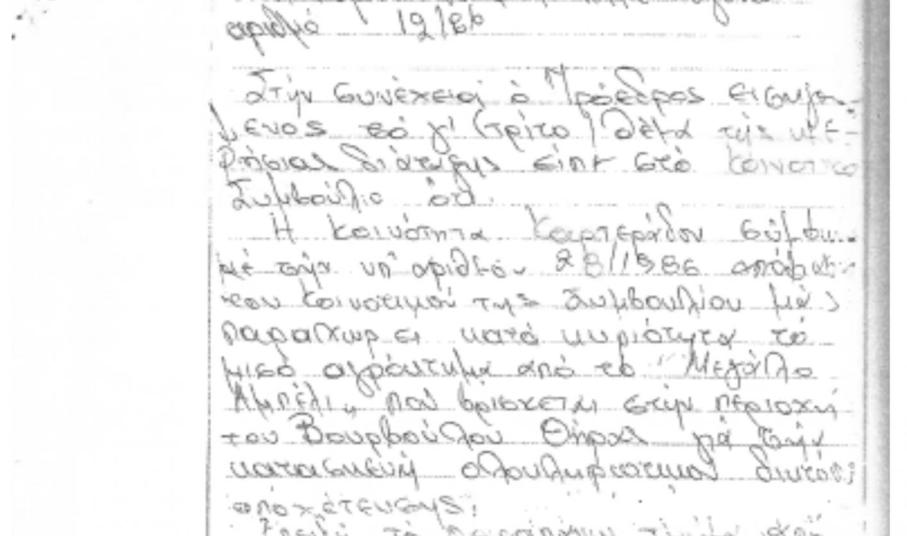 αριθμό 19/86
Στήν συνέχεια ὁ Πρόεδρος εισηγού-
μενος τό γ' (τρίτο) θέμα τῆς ημε-
ρήσιας διάταξης εἶπε στό Κοινοτικό
Συμβούλιο ὅτι.
Η Κοινότητα Καρτεράδου σύμφω
μέ τήν υπ' αριθμόν 28/1986 απόφαση
του Κοινοτικού της Συμβουλίου μάς
παραχωρεί κατά κυριότητα τό
μισό αγρόκτημα από το "Μεγάλο
Αμπέλι" πού βρίσκεται στήν περιοχή
του Βουρβούλου Θήρας γιά τήν
κατασκευή ολοκληρωτικού δικτύου
αποχέτευσης.
Επειδή τό